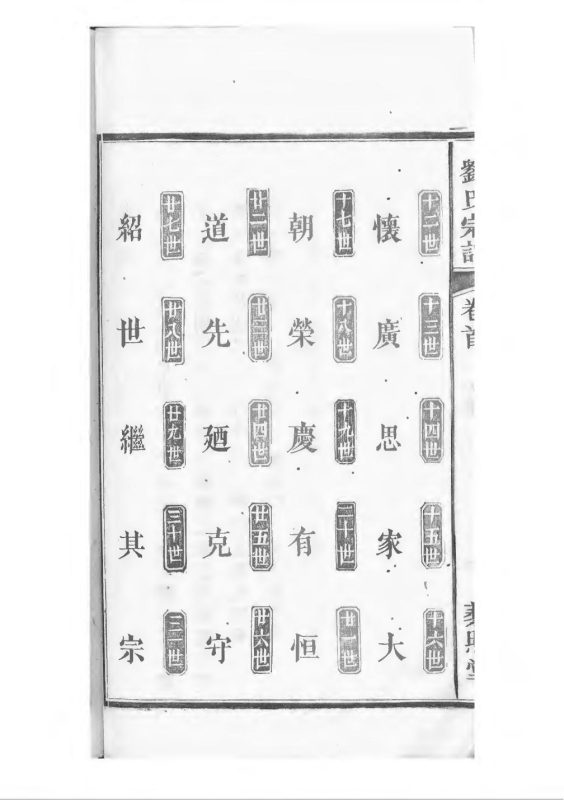 劉氏宗譜
卷首
十二世 十三世 十四世 十五世 十六世
懷 廣 思 家 大
十七世 十八世 十九世 二十世 廿一世
朝 榮 慶 有 恒
廿二世 廿三世 廿四世 廿五世 廿六世
道 先 廼 克 守
廿七世 廿八世 廿九世 三十世 三一世
紹 世 繼 其 宗